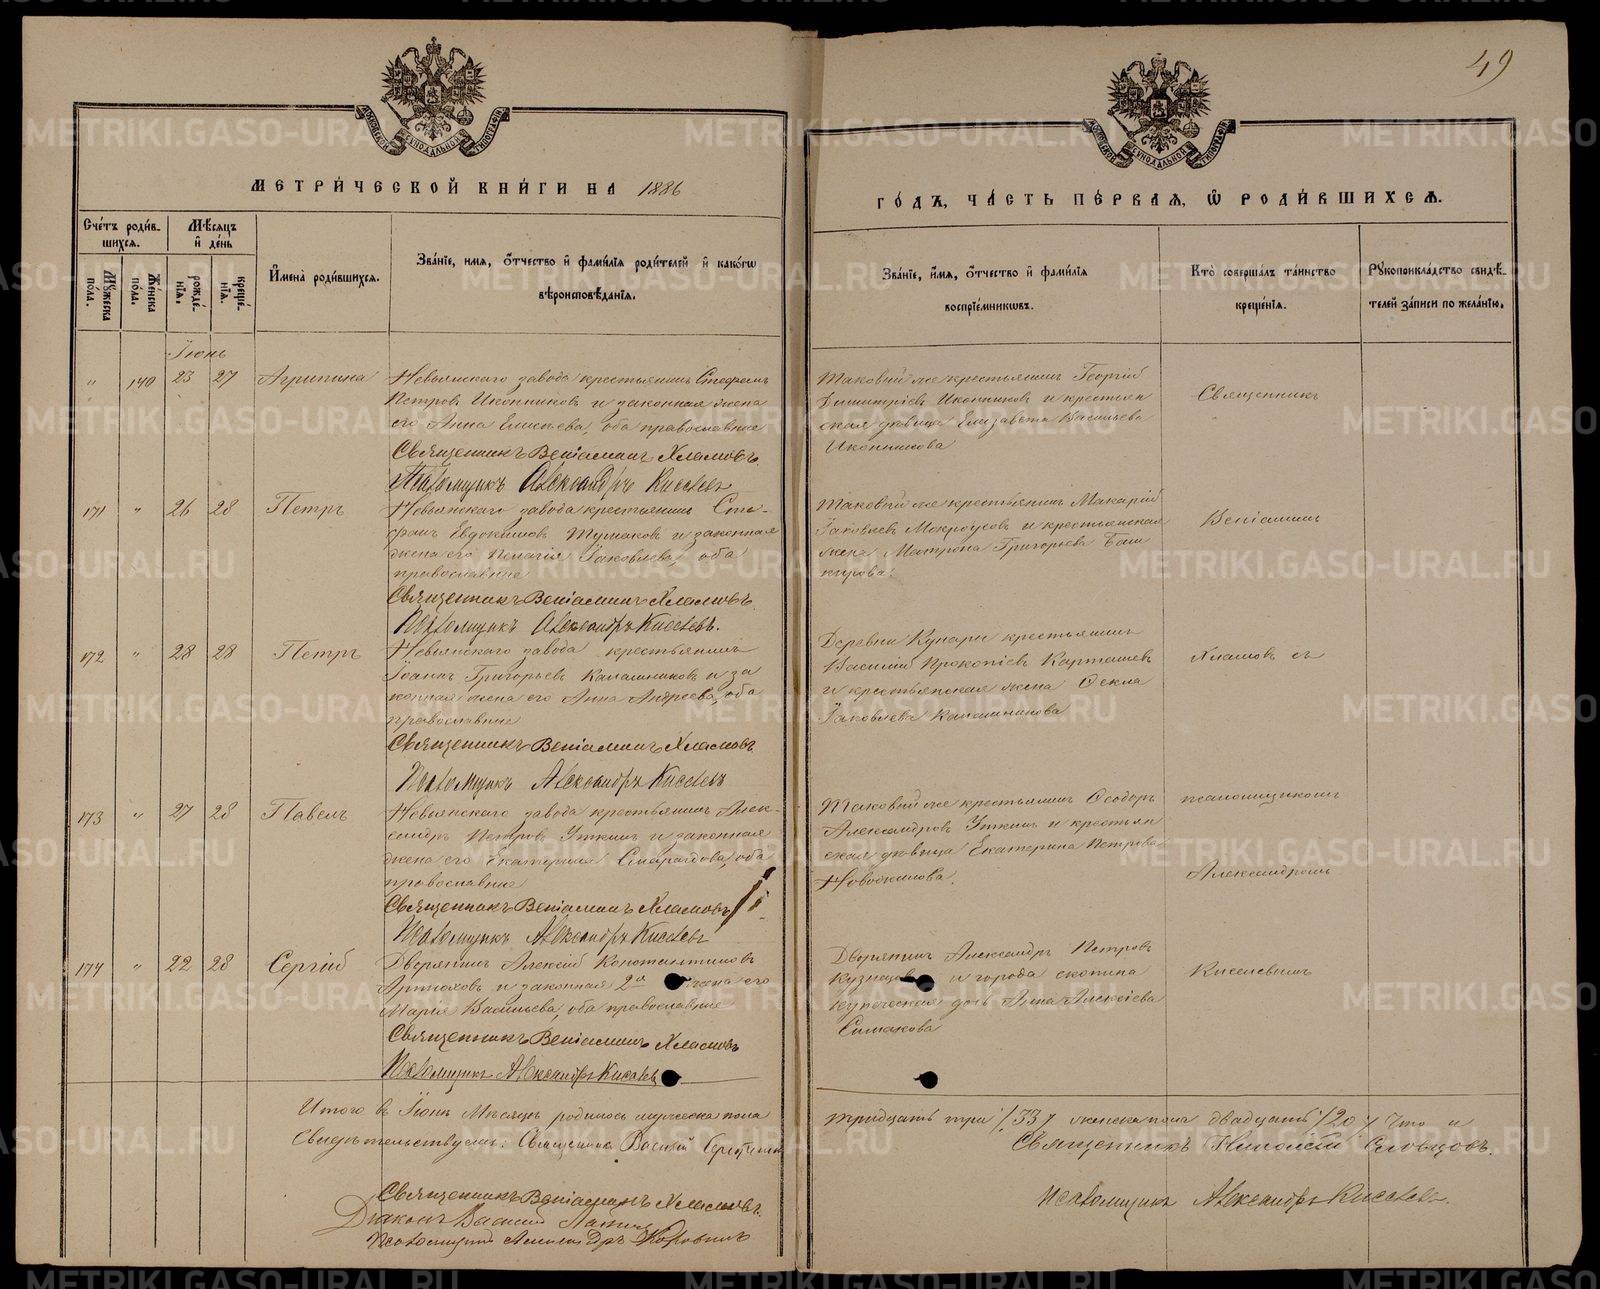 49
МЕТРИ́ЧЕСКОЙ КНИ́ГИ НА 1886
ГО́ДЪ, ЧА́СТЬ ПЕ́РВАЯ, Ѿ РОДИ́ВШИХСЯ.
Сче́тъ роди́в-
шихся.
Мѣ́сяцъ
и де́нь
Мꙋ́жеска
пола.
Же́нска
пола.
рожде́-
нїя.
креще́-
нїя.
Имена̀ роди́вшихся.
Зва́нїе, имя, ѻ҆́тчество и фами́лїя роди́телей и како́гѡ
вѣроисповѣ́данїя.
Зва́нїе, и́мя, ѻ҆́тчество и фами́лїя
воспрїе́мникѡвъ.
Кто̀ соверша́лъ та́инство
креще́нїя.
Рꙋкоприкла́дство свидѣ́-
телей за́писи по жела́нїю.
Іюнь
" 140 23 27 Агрипина
Невьянскаго завода крестьянинъ Стефанъ
Петровъ Иконниковъ и законная жена
его Анна Елисеева, оба православные
Священникъ Веніаминъ Хламовъ.
Псаломщикъ Александръ Киселевъ
Таковый же крестьянинъ Георгій
Димитріевъ Иконниковъ и крестьян
ская дѣвица Елизавета Васильева
Иконникова
Священникъ
171 " 26 28 Петръ
Невьянскаго завода крестьянинъ Сте-
фанъ Евдокимовъ Тумаковъ и законная
жена его Пелагія Іаковлева, оба
православные
Священникъ Веніаминъ Хламовъ.
Псаломщикъ Александръ Киселевъ.
Таковый же крестьянинъ Макарій
Іаковлевъ Мокроусовъ и крестьянская
жена Матрона Григорьева Баш
кирова.
Веніаминъ
172 " 28 28 Петръ
Невьянскаго завода крестьянинъ
Іоаннъ Григорьевъ Калашниковъ и за
конная жена его Анна Андреева, оба
православные
Священникъ Веніаминъ Хламовъ
Псаломщикъ Александръ Киселевъ
Деревни Кунары крестьянинъ
Василій Прокопіевъ Карташевъ
и крестьянская жена Ѳекла
Іаковлева Калашникова
Хламовъ съ
173 " 27 28 Павелъ
Невьянскаго завода крестьянинъ Алек-
сандръ Петровъ Уткинъ и законная
жена его Екатерина Смарагдова, оба
православные
Священникъ Веніаминъ Хламовъ
Псаломщикъ Александръ Киселевъ
Таковый же крестьянинъ Ѳеодоръ
Александровъ Уткинъ и крестьян
ская дѣвица Екатерина Петрова
Новоселова.
псаломщикомъ
Александромъ
174 " 22 28 Сергій
Дворянинъ Алексій Константиновъ
Артюховъ и законная 2я жена его
Марія Васильева, оба православные
Священникъ Веніаминъ Хламовъ
Псаломщикъ Александръ Киселевъ
Дворянинъ Александръ Петровъ
Кузнецовъ и города скопина
купеческая дочь Анна Алексіева
Симакова
Киселевымъ
Итого въ Іюнѣ мѣсяцѣ родилось мужеска пола
тридцать три /:33:/ женска пола двадцать /:20:/ Что и
Свидѣтельствуемъ: Священникъ Василій
Священникъ Николай Словцовъ.
Священникъ Веніаминъ Хламовъ.
Псаломщикъ Александръ Киселевъ.
Діаконъ Василій
Псаломщикъ Александръ Коровинъ